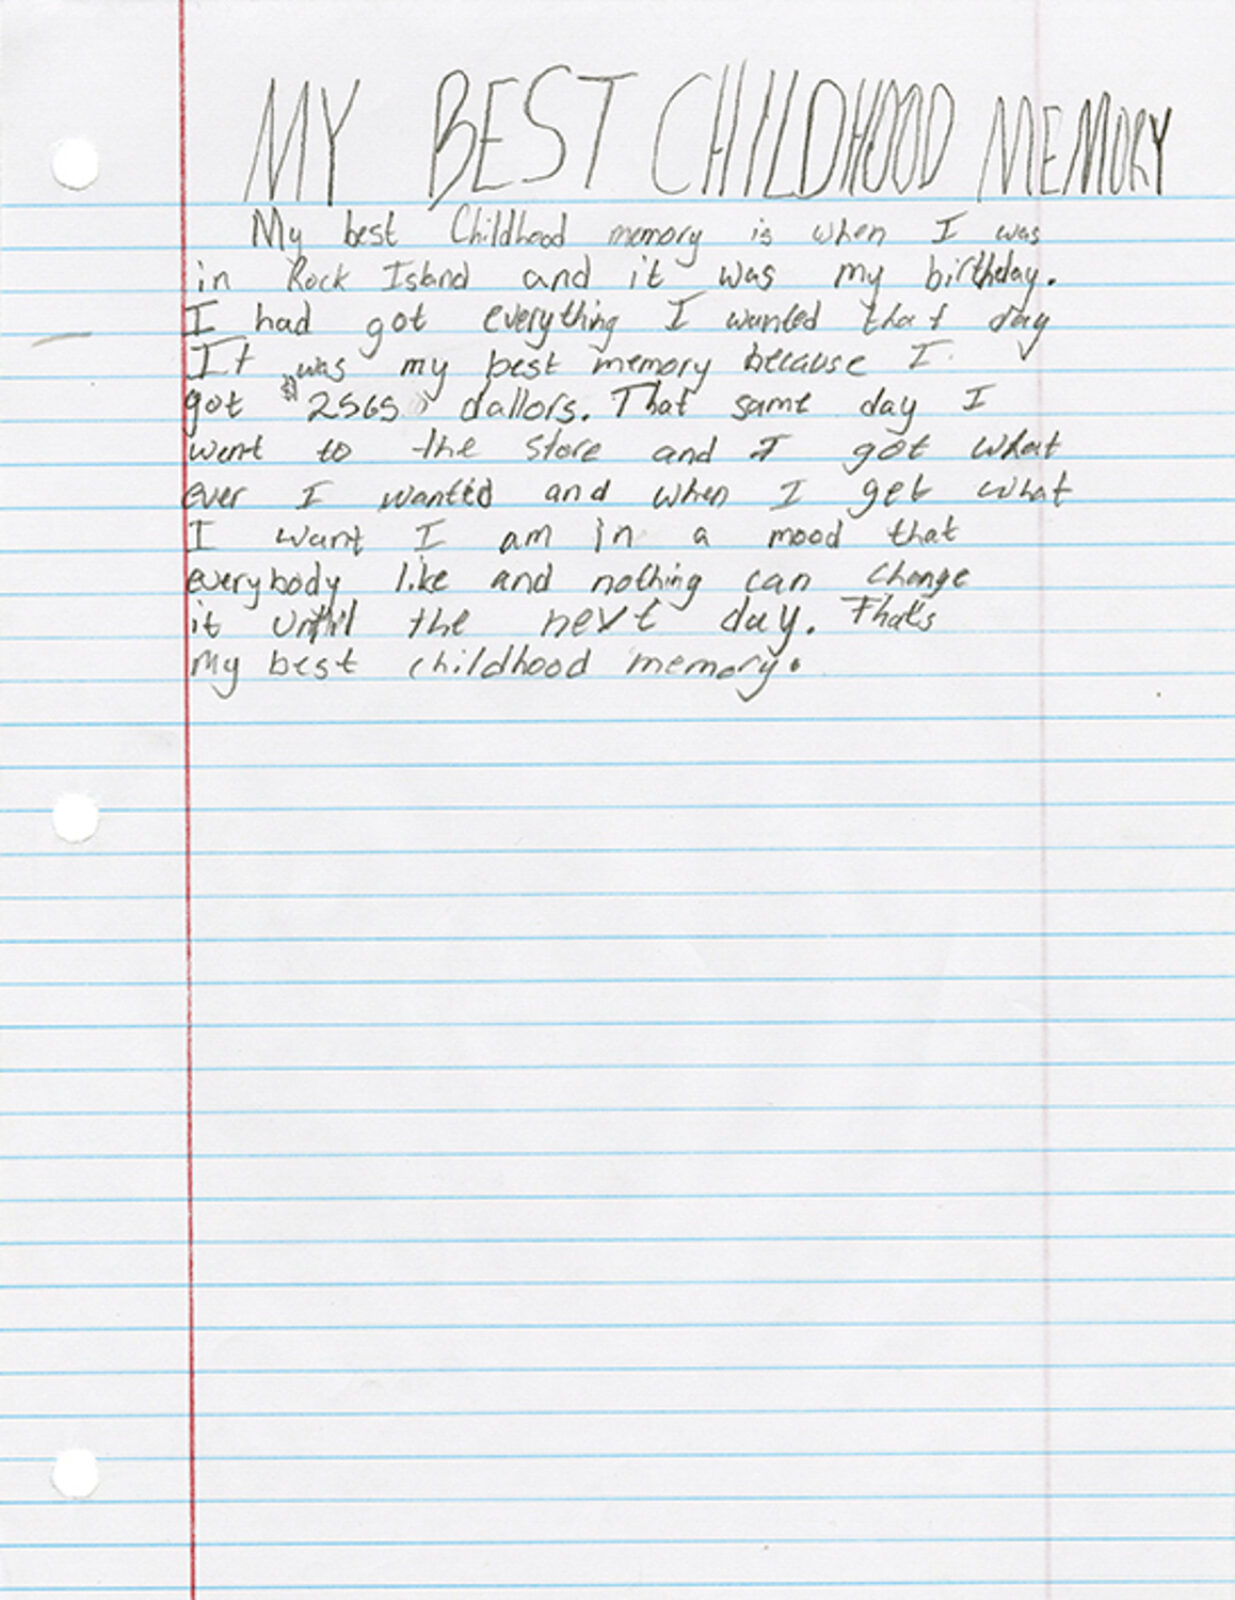 MY BEST CHILDHOOD MEMORY
My best Childhood memory is when I was
in Rock Island and it was my birthday.
I had got everything I wanted that day
It was my best memory because I
got $2565 dallors. That same day I
went to the store and I got what
ever I wanted and when I get what
I want I am in a mood that
everybody like and nothing can change
it until the next day. That's
My best childhood memory.